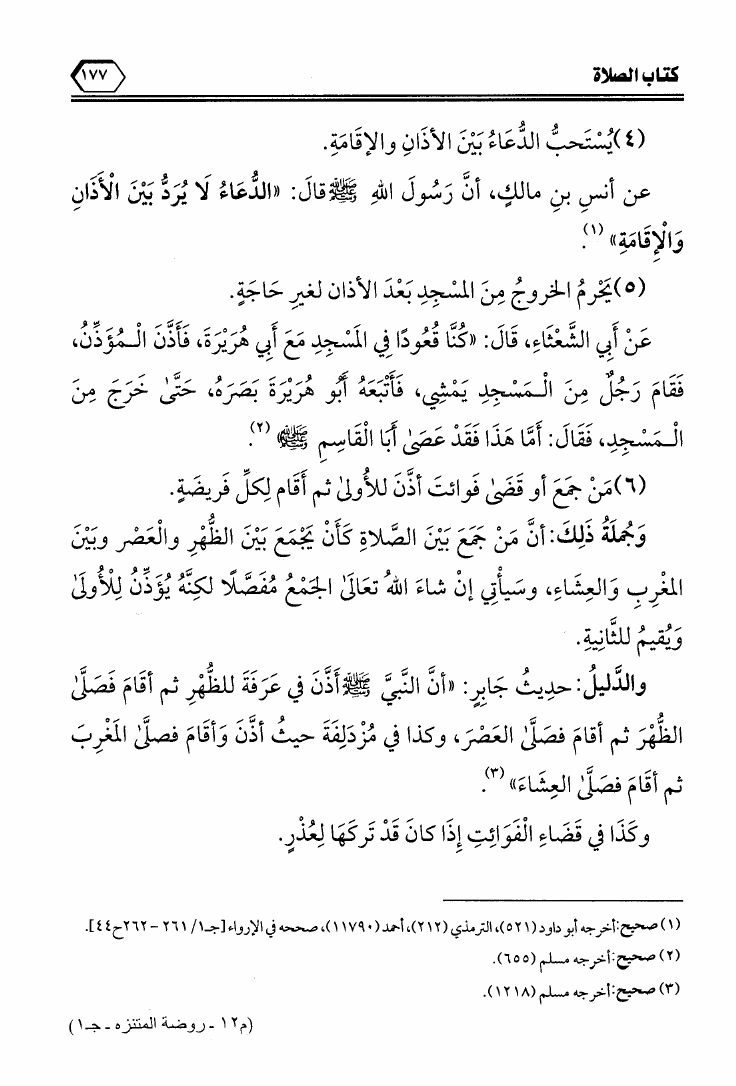 كتاب الصلاة
١٧٧
(٤) يُسْتَحبُّ الدُّعَاءُ بَيْنَ الأذَانِ والإقَامَةِ.
عن أنسِ بنِ مالكٍ، أنَّ رَسُولَ اللهِ ﷺ قالَ: «الدُّعَاءُ لَا يُرَدُّ بَيْنَ الْأَذَانِ
وَالْإِقَامَةِ» (١).
(٥) يَحْرمُ الخروجُ مِنَ المسْجِدِ بَعْدَ الأذان لغيرِ حَاجَةٍ.
عَنْ أَبِي الشَّعْثَاءِ، قَالَ: «كُنَّا قُعُودًا فِي المَسْجِدِ مَعَ أَبِي هُرَيْرَةَ، فَأَذَّنَ الْـمُؤَذِّنُ،
فَقَامَ رَجُلٌ مِنَ الْـمَسْجِدِ يَمْشِي، فَأَتْبَعَهُ أَبُو هُرَيْرَةَ بَصَرَهُ، حَتَّىٰ خَرَجَ مِنَ
الْـمَسْجِدِ، فَقَالَ: أَمَّا هَذَا فَقَدْ عَصَىٰ أَبَا الْقَاسِمِ ﷺ (٢).
(٦) مَنْ جَمَعَ أو قَضَىٰ فَوائتَ أذَّنَ للأُولىٰ ثم أَقَام لِكلِّ فَريضَةٍ.
وَجُملَةُ ذَلِكَ: أنَّ مَنْ جَمَعَ بَيْنَ الصَّلاةِ كَأَنْ يَجْمَعَ بَيْنَ الظُّهْرِ والْعَصْرِ وبَيْنَ
المغْرِبِ وَالعِشَاءِ، وسَيأْتِي إنْ شاءَ اللهُ تعَالَىٰ الجَمْعُ مُفَصَّلًا لكنَّهُ يُؤَذِّنُ لِلْأُولَىٰ
وَيُقيمُ للثَّانِيةِ.
والدَّليلُ: حديثُ جَابِرٍ: «أنَّ النَّبيَّ ﷺ أَذَّنَ في عَرفَةَ للظُّهْرِ ثم أقَامَ فَصَلَّىٰ
الظُّهْرَ ثم أقامَ فصَلَّىٰ العَصْرَ، وكذا في مُزْدَلِفَةَ حيثُ أذَّنَ وَأقَامَ فصلَّىٰ المَغْرِبَ
ثم أقَامَ فصَلَّىٰ العِشَاءَ» (٣).
وكَذَا في قَضَاءِ الْفَوَائِتِ إِذَا كانَ قَدْ تَركَهَا لِعُذْرٍ.
(١) صحيح: أخرجه أبو داود (٥٢١)، الترمذي (٢١٢)، أحمد (١١٧٩٠)، صححه في الإرواء [جـ١/ ٢٦١ - ٢٦٢ح٤٤].
(٢) صحيح: أخرجه مسلم (٦٥٥).
(٣) صحيح: أخرجه مسلم (١٢١٨).
(م١٢ - روضة المتنزه - جـ١)